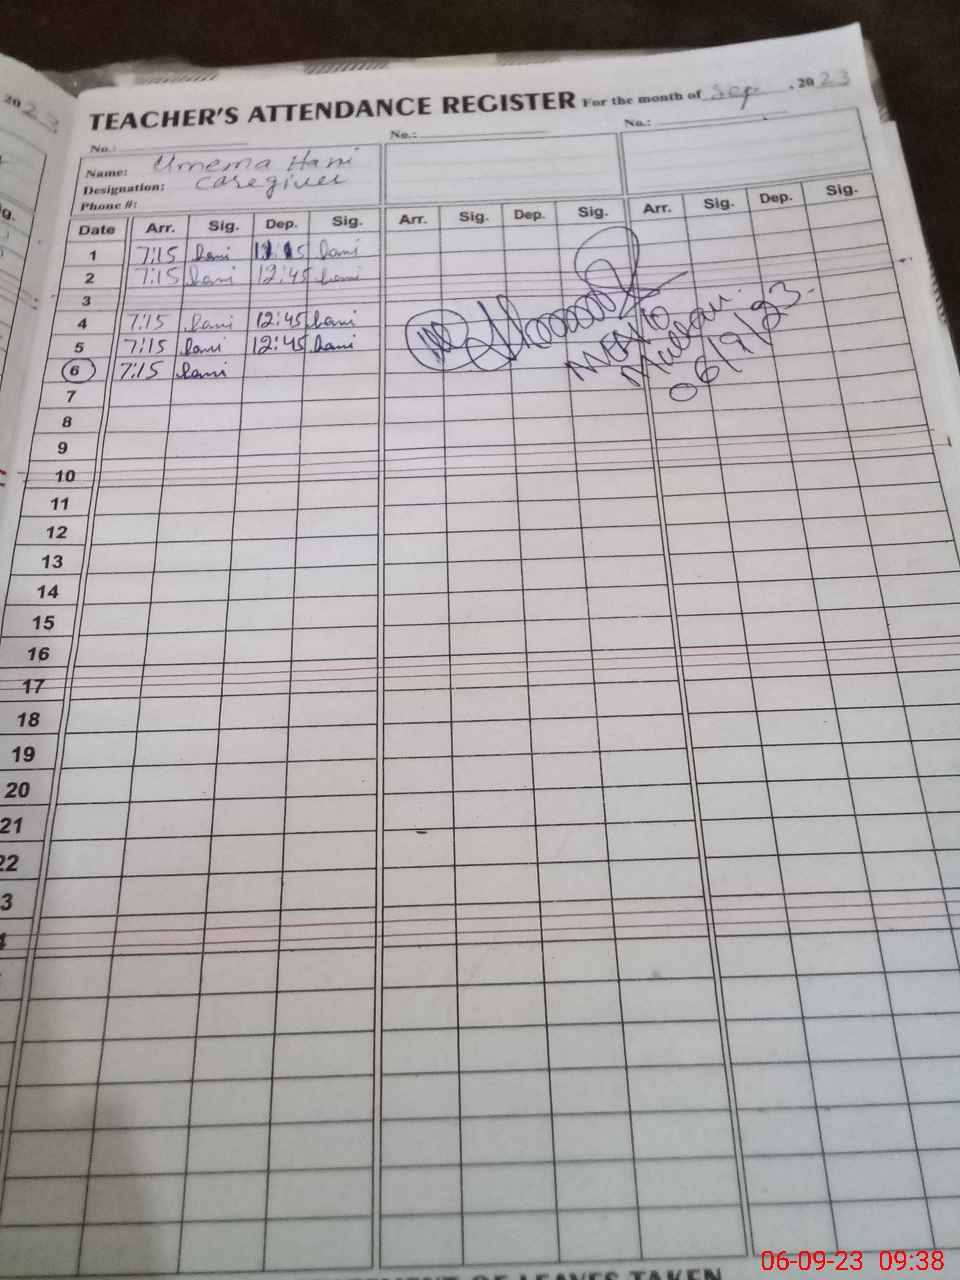 TEACHER'S ATTENDANCE REGISTER For the month of Sep, 2023
No.: No.: No.:
Name: Umema Hani
Designation: Caregiver
Phone #:
Date Arr. Sig. Dep. Sig. Arr. Sig. Dep. Sig. Arr. Sig. Dep. Sig.
1 7:15 hani 11:15 hani
2 7:15 hani 12:45 hani
3
4 7:15 hani 12:45 hani
5 7:15 hani 12:45 hani
6 7:15 hani
Multan.
06/9/23.
7
8
9
10
11
12
13
14
15
16
17
18
19
20
21
22
3
4
OF LEAVES TAKEN
06-09-23 09:38